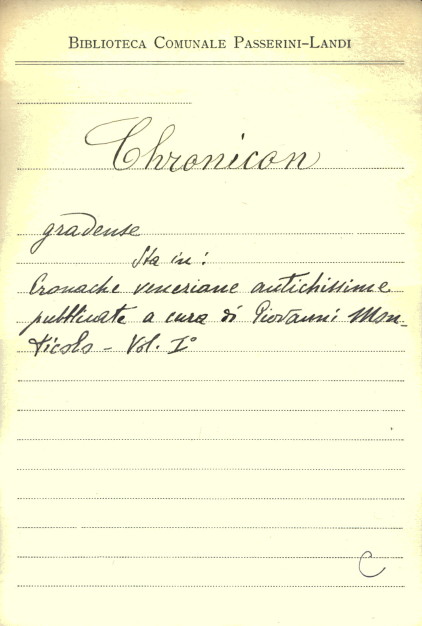 BIBLIOTECA COMUNALE PASSERINI-LANDI
Chronicon
gradense
Sta in:
Cronache veneziane antichissime
pubblicate a cura di Giovanni Mon-
ticolo - Vol. I°
C